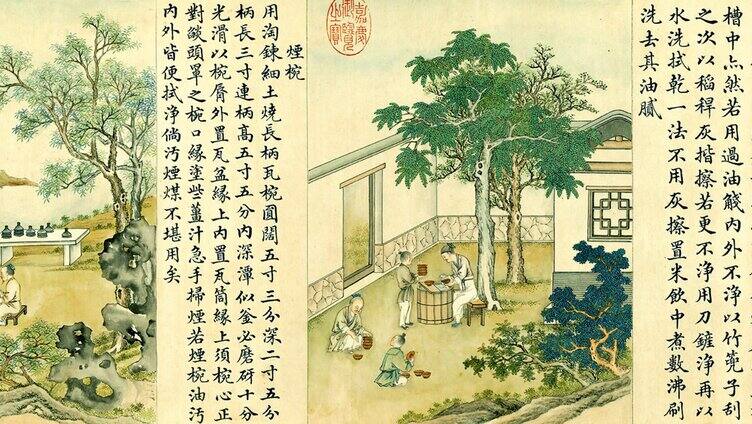 槽中点然若用過油醆内外不淨以竹篦子刮
之次以稻稈灰揩擦若更不淨用刀鏟淨再以
水洗拭乾一法不用灰擦置米飲中煮數沸刷
洗去其油膩
嘉慶御覽之寶
煙椀
用淘鍊細土燒長柄瓦椀圓闊五寸三分深二寸五分
柄長三寸連柄高五寸五分内深潭似釜必磨砑十分
光滑以椀脣外置瓦盆緣上内置瓦筒緣上須椀心正
對燄頭罩之椀口緣塗些薑汁急手掃煙若煙椀油污
内外皆便拭淨倘污煙煤不堪用矣